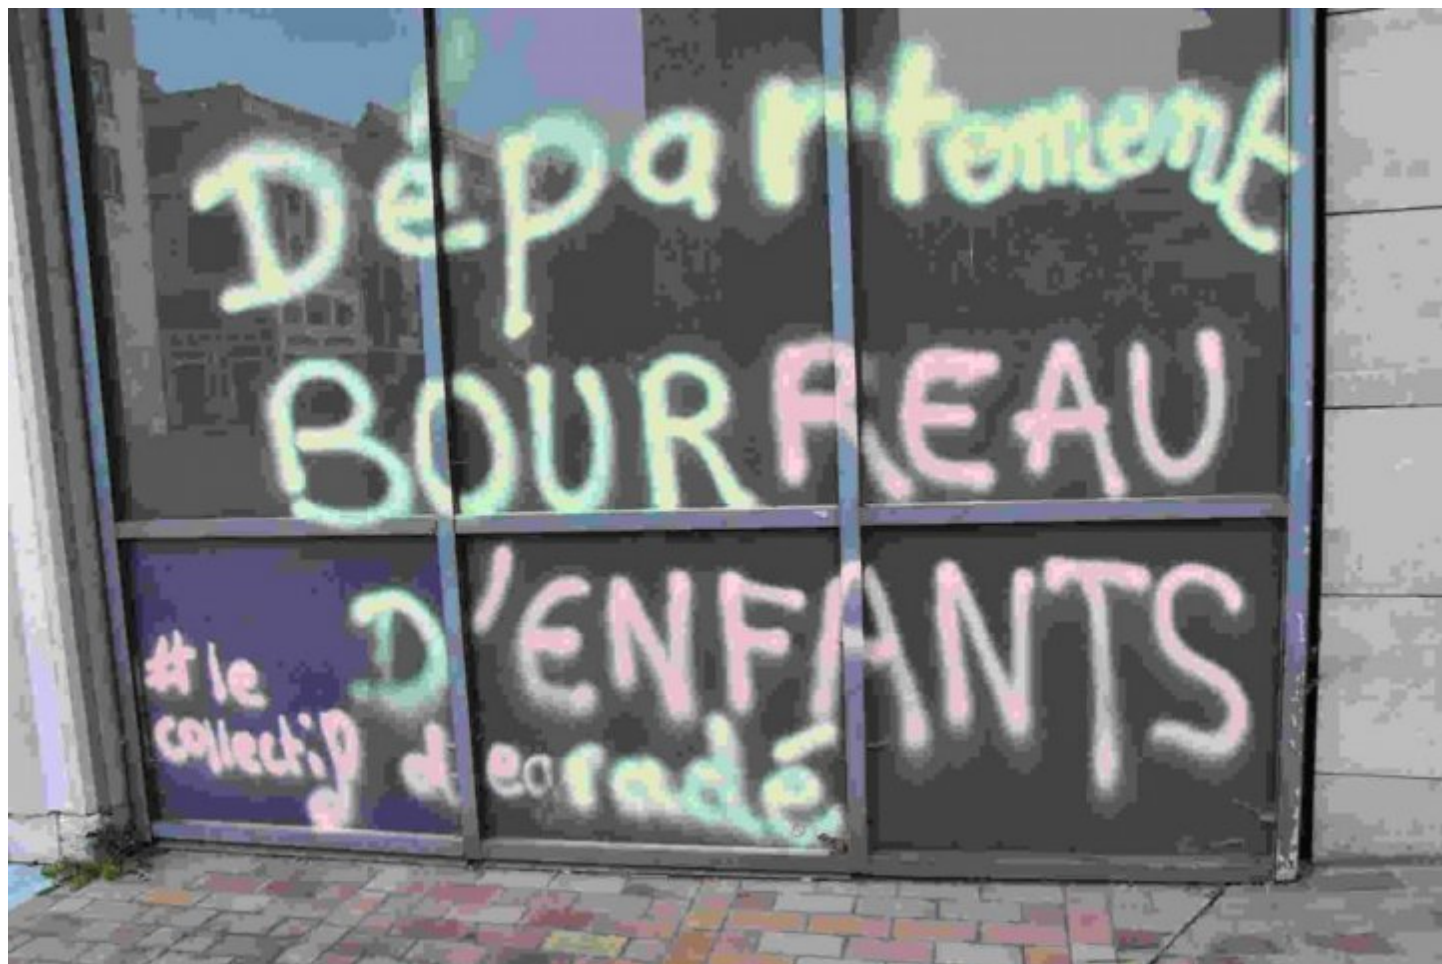 Département
BOURREAU
D'ENFANTS
#le
collectif